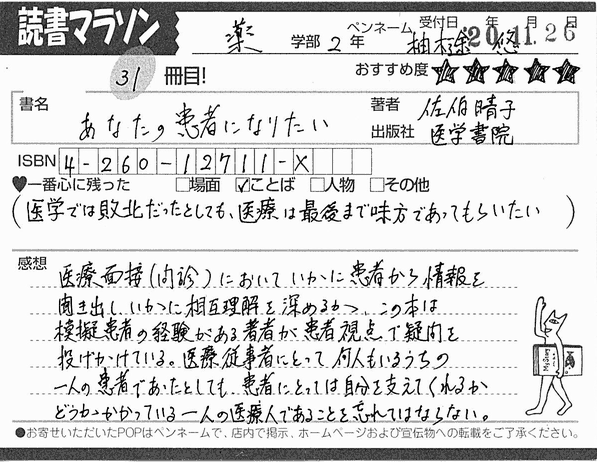 読書マラソン
薬 学部 2 年 ペンネーム 柚木 悠 受付日 '20年11月26日
31 冊目! おすすめ度 ★★★★★
書名 あなたの患者になりたい
著者 佐伯晴子
出版社 医学書院
ISBN 4-260-12711-X
♥一番心に残った □場面 ☑ことば □人物 □その他
(医学では敗北だったとしても、医療は最後まで味方であってもらいたい)
感想
医療面接(問診)において いかに患者から情報を
聞き出し、いかに相互理解を深めるか、この本は
模擬患者の経験がある著者が患者視点で疑問を
投げかけている。医療従事者にとって何人もいるうちの
一人の患者であったとしても、患者にとっては自分を支えてくれるか
どうかかかっている一人の医療人であることを忘れてはならない。
●お寄せいただいたPOPはペンネームで、店内で掲示、ホームページおよび宣伝物への転載をご了承ください。